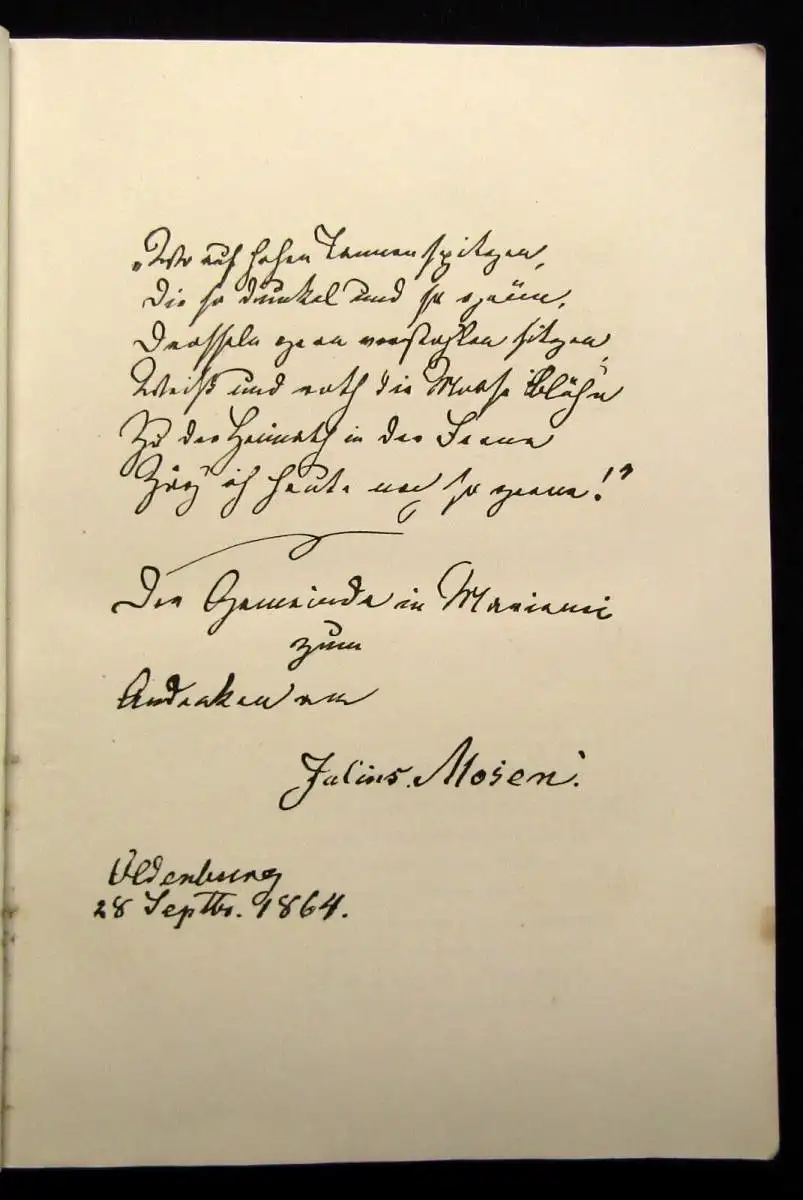 „Wo auf hohen Tannenspitzen,
die so dunkel und so grün,
Drosseln gern verstohlen sitzen,
Weiß und roth die Moose blühn
Zu der Heimath in der Ferne
Zög' ich heute noch so gerne!"
Der Gemeinde in Marienei
zum
Andenken von
Julius Mosen.
Oldenburg
28 Septbr. 1864.